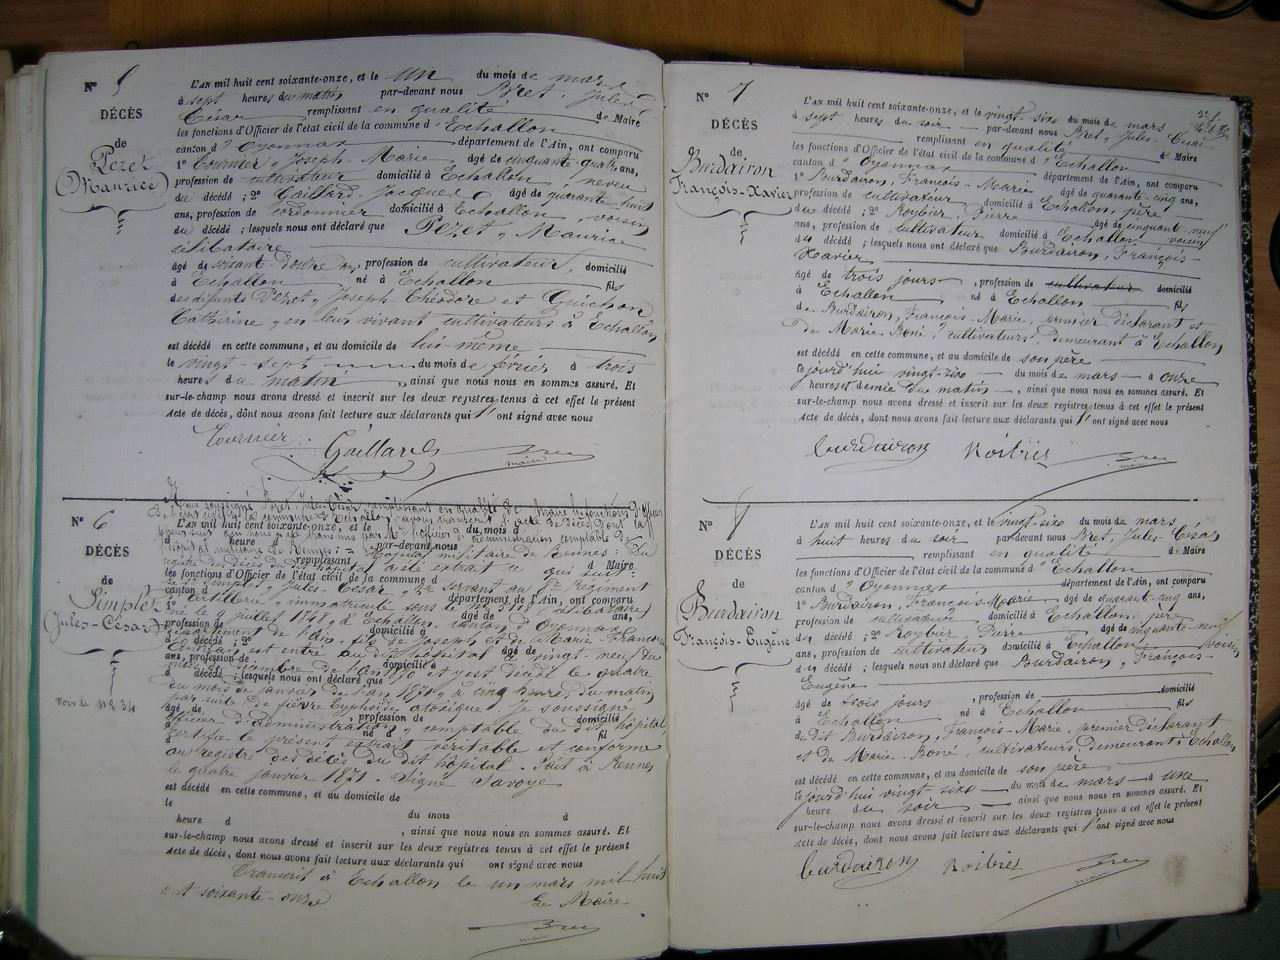 N° 5
DÉCÈS
de
Pezet
(Maurice)
L'AN mil huit cent soixante-onze, et le un du mois de mars
à sept heures du matin par-devant nous Bret, Jules
César remplissant en qualité de Maire
les fonctions d'Officier de l'état civil de la commune d'Echallon
canton d'Oyonnax département de l'Ain, ont comparu
1° Tournier, Joseph-Marie, âgé de cinquante quatre ans,
profession de cultivateur domicilié à Echallon, neveu
du décédé ; 2° Gaillard, Jacques âgé de quarante huit
ans, profession de cordonnier domicilié à Echallon, voisin
du décédé ; lesquels nous ont déclaré que Pezet, Maurice
célibataire
âgé de soixante-douze ans, profession de cultivateur, domicilié
à Echallon né à Echallon fils
des défunts Pezet, Joseph-Théodore et Guichon
Catherine, en leur vivant cultivateurs à Echallon
est décédé en cette commune, et au domicile de lui-même
le vingt-sept du mois de février à trois
heures du matin, ainsi que nous nous en sommes assuré. Et
sur-le-champ nous avons dressé et inscrit sur les deux registres tenus à cet effet le présent
Acte de décès, dont nous avons fait lecture aux déclarants qui l'ont signé avec nous
Tournier Gaillard Bret
maire
N° 6
DÉCÈS
de
Simplet
(Jules-César)
Voir le N° 34
L'AN mil huit cent soixante-onze, et le du mois d
heure par-devant nous
remplissant d Maire
les fonctions d'Officier de l'état civil de la commune d
canton d département de l'Ain, ont comparu
né le 9 juillet 1841, à Echallon, canton d'Oyonnax
département de l'Ain, fils de Joseph et de Marie Françoise
est entré au dit hôpital le vingt-neuf du
mois de décembre de l'an 1870 et y est décédé le quatre
du mois de janvier de l'an 1871, à cinq heures du matin
par suite de fièvre typhoïde Je soussigné
officier d'Administration, comptable du dit hôpital,
certifie le présent extrait véritable et conforme
au registre des décès du dit hôpital. Fait à Rennes
le quatre janvier 1871. Signé Savoye
est décédé en cette commune, et au domicile de
le du mois à
heure d , ainsi que nous nous en sommes assuré. Et
sur-le-champ nous avons dressé et inscrit sur les deux registres tenus à cet effet le présent
Acte de décès, dont nous avons fait lecture aux déclarants qui ont signé avec nous
Transcrit à Echallon le un mars mil huit
cent soixante-onze Le Maire
Bret
maire
N° 7
DÉCÈS
de
Burdairon
François-Xavier
L'AN mil huit cent soixante-onze, et le vingt-six du mois de mars
à sept heures du soir par-devant nous Bret, Jules-César
remplissant en qualité d Maire
les fonctions d'Officier de l'état civil de la commune d'Echallon
canton d'Oyonnax département de l'Ain, ont comparu
1° Burdairon, François-Marie âgé de quarante-cinq ans,
profession de cultivateur domicilié à Echallon, père
du décédé ; 2° Roybier, Pierre âgé de cinquante neuf
ans, profession de cultivateur domicilié à Echallon voisin
du décédé ; lesquels nous ont déclaré que Burdairon, François-
Xavier
âgé de trois jours, profession de cultivateur domicilié
à Echallon né à Echallon fils
de Burdairon, François-Marie, premier déclarant et
de Marie Roné, cultivateurs, demeurant à Echallon
est décédé en cette commune, et au domicile de son père
le jourd'hui vingt-six du mois de mars à onze
heures et demie du matin, ainsi que nous nous en sommes assuré. Et
sur-le-champ nous avons dressé et inscrit sur les deux registres tenus à cet effet le présent
Acte de décès, dont nous avons fait lecture aux déclarants qui l'ont signé avec nous
Burdairon Roibier Bret
maire
N° 8
DÉCÈS
de
Burdairon
François-Eugène
L'AN mil huit cent soixante-onze, et le vingt-six du mois de mars
à huit heures du soir par-devant nous Bret, Jules-César
remplissant en qualité d Maire
les fonctions d'Officier de l'état civil de la commune d'Echallon
canton d'Oyonnax département de l'Ain, ont comparu
1° Burdairon, François-Marie âgé de quarante-cinq ans,
profession de cultivateur domicilié à Echallon, père
du décédé ; 2° Roybier, Pierre âgé de cinquante-neuf
ans, profession de cultivateur domicilié à Echallon, voisin
du décédé ; lesquels nous ont déclaré que Burdairon, François-
Eugène
âgé de trois jours, profession de domicilié
à Echallon né à Echallon fils
du dit Burdairon, François-Marie, premier déclarant
et de Marie Roné, cultivateurs demeurant à Echallon
est décédé en cette commune, et au domicile de son père
le jourd'hui vingt six du mois de mars à une
heure du soir ainsi que nous nous en sommes assuré. Et
sur-le-champ nous avons dressé et inscrit sur les deux registres tenus à cet effet le présent
Acte de décès, dont nous avons fait lecture aux déclarants qui l'ont signé avec nous
Burdairon Roibier Bret
maire